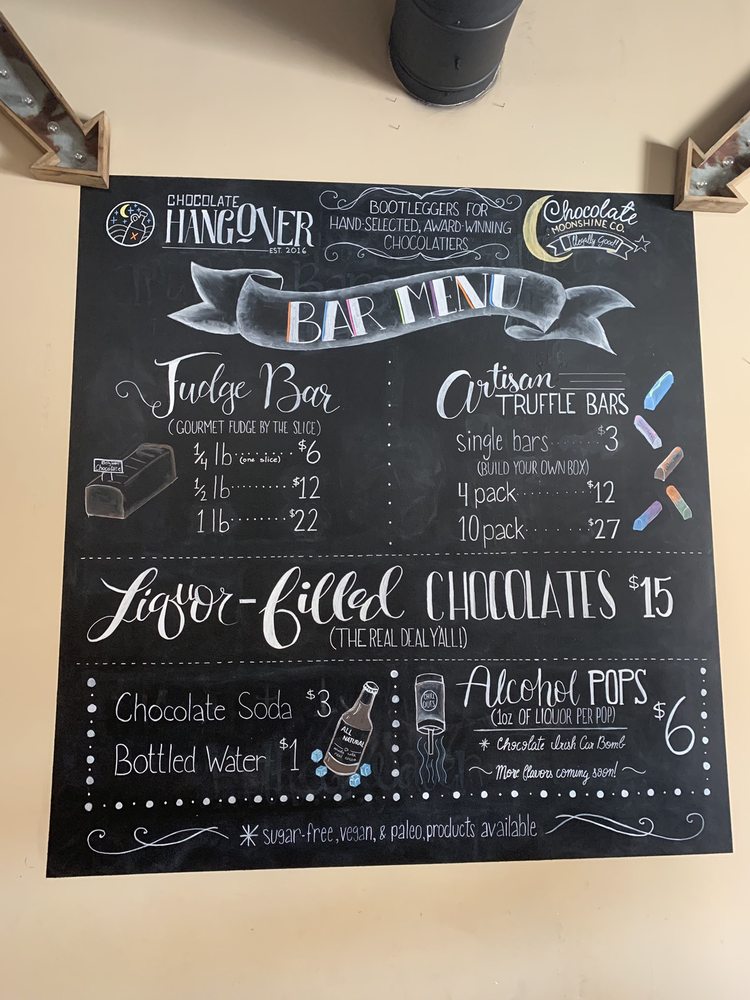 CHOCOLATE
HANGOVER
EST. 2016
BOOTLEGGERS FOR
HAND-SELECTED, AWARD-WINNING
CHOCOLATIERS
Chocolate
MOONSHINE CO.
Illegally Good!
BAR MENU
Fudge Bar
(GOURMET FUDGE BY THE SLICE)
1/4 lb (one slice) $6
1/2 lb $12
1 lb $22
Chocolate
Artisan
TRUFFLE BARS
single bars $3
(BUILD YOUR OWN BOX)
4 pack $12
10 pack $27
Liquor-filled CHOCOLATES $15
(THE REAL DEAL Y'ALL!)
Chocolate Soda $3
Bottled Water $1
ALL
NATURAL
Alcohol POPS
(1oz OF LIQUOR PER POP)
$6
* Chocolate Irish Car Bomb
~ More flavors coming soon! ~
* sugar-free, vegan, & paleo, products available